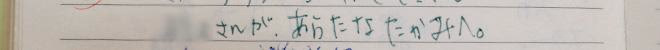 さんが、あらたなたかみへ。